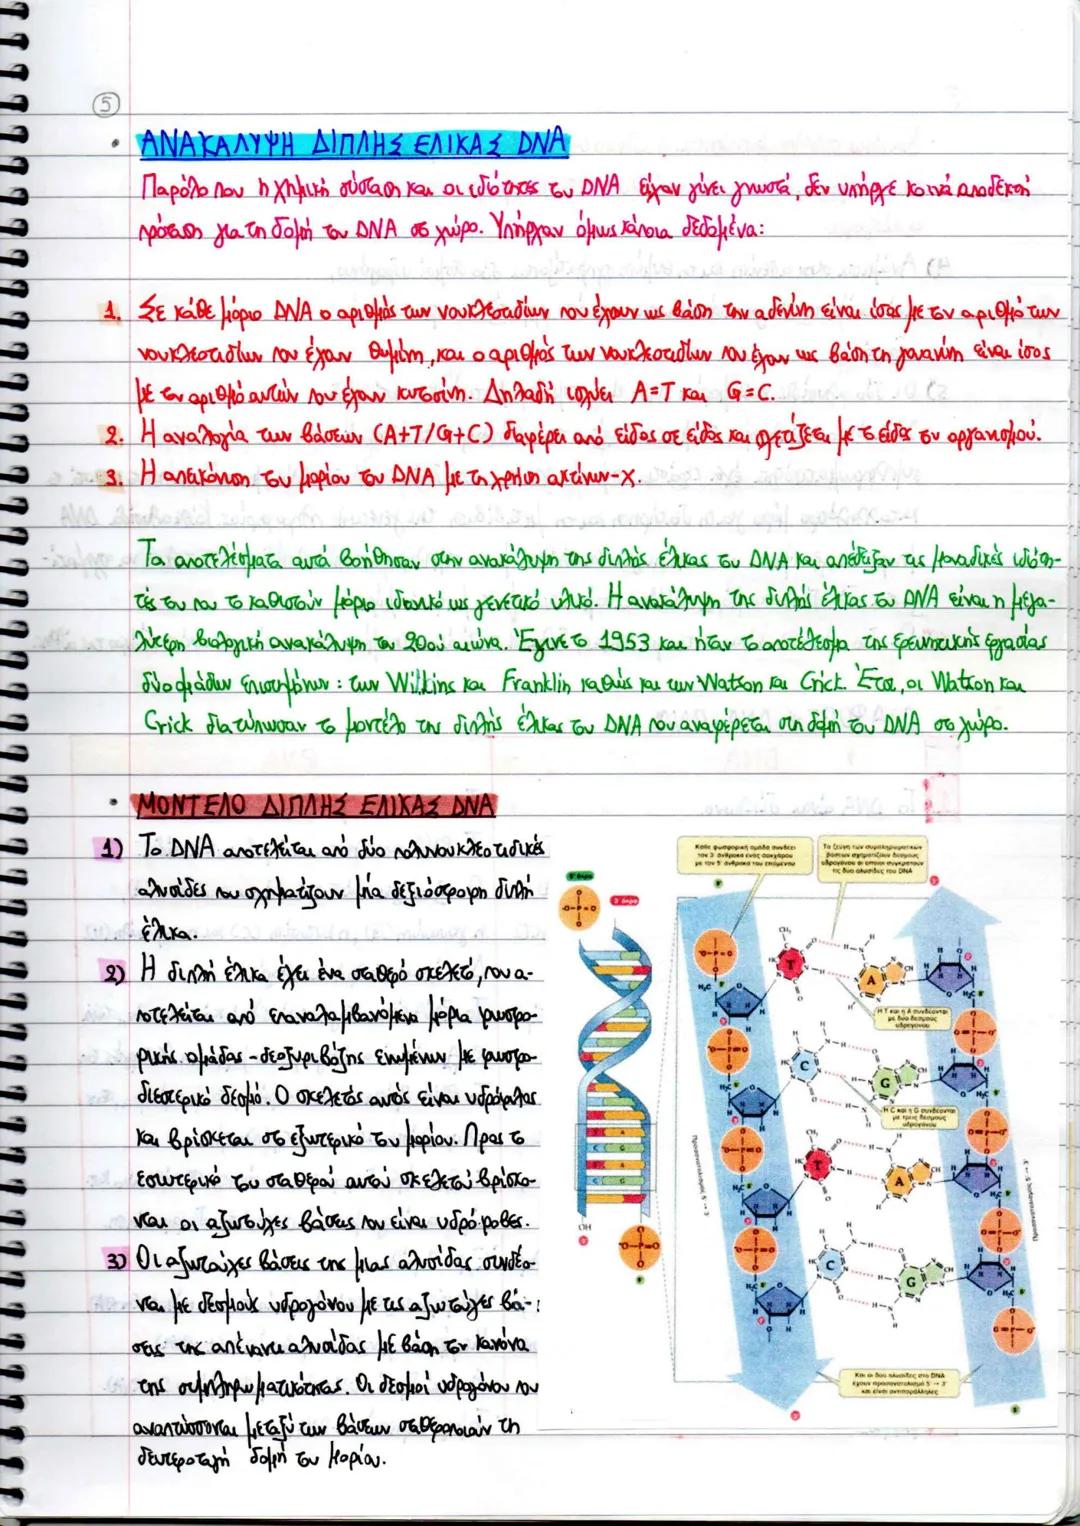 5
• ΑΝΑΚΑΛΥΨΗ ΔΙΠΛΗΣ ΕΛΙΚΑΣ DNA
Παρόλο που η χημική σύσταση και οι ιδιότητες του DNA είχαν γίνει γνωστά, δεν υπήρχε κοινά αποδεκτή
πρόταση για τη δομή του DNA σε χώρο. Υπήρχαν όμως κάποια δεδομένα:
1. Σε κάθε μόριο DNA ο αριθμός των νουκλεοτιδίων που έχουν ως βάση την αδενίνη είναι ίσος με τον αριθμό των
νουκλεοτιδίων που έχουν θυμίνη, και ο αριθμός των νουκλεοτιδίων που έχουν ως βάση τη γουανίνη είναι ίσος
με τον αριθμό αυτών που έχουν κυτοσίνη. Δηλαδή ισχύει A=T και G=C.
2. Η αναλογία των βάσεων (A+T/G+C) διαφέρει από είδος σε είδος και σχετίζεται με το είδος του οργανισμού.
3. Η απεικόνιση του μορίου του DNA με τη χρήση ακτίνων-Χ.
Τα αποτελέσματα αυτά βοήθησαν στην ανακάλυψη της διπλής έλικας του DNA και απέδειξαν τις μοναδικές ιδιότη-
τές του που το καθιστούν μόριο ιδανικό ως γενετικό υλικό. Η ανακάλυψη της διπλής έλικας του DNA είναι η μεγα-
λύτερη βιολογική ανακάλυψη του 20ού αιώνα. Έγινε το 1953 και ήταν το αποτέλεσμα της ερευνητικής εργασίας
δύο ομάδων επιστημόνων: των Wilkins και Franklin καθώς και των Watson και Crick. Έτσι, οι Watson και
Crick διατύπωσαν το μοντέλο της διπλής έλικας του DNA που αναφέρεται στη δομή του DNA στο χώρο.
• ΜΟΝΤΕΛΟ ΔΙΠΛΗΣ ΕΛΙΚΑΣ DNA
1) Το DNA αποτελείται από δύο πολυνουκλεοτιδικές
αλυσίδες που σχηματίζουν μία δεξιόστροφη διπλή
έλικα.
2) Η διπλή έλικα έχει ένα σταθερό σκελετό, που α-
ποτελείται από επαναλαμβανόμενα μόρια φωσφο-
ρικής ομάδας - δεοξυριβόζης ενωμένων με φωσφο-
διεστερικό δεσμό. Ο σκελετός αυτός είναι υδρόφιλος
και βρίσκεται στο εξωτερικό του μορίου. Προς το
εσωτερικό του σταθερού αυτού σκελετού βρίσκο-
νται οι αζωτούχες βάσεις που είναι υδρόφοβες.
3) Οι αζωτούχες βάσεις της μιας αλυσίδας συνδέο-
νται με δεσμούς υδρογόνου με τις αζωτούχες βά-
σεις της απέναντι αλυσίδας με βάση τον κανόνα
της συμπληρωματικότητας. Οι δεσμοί υδρογόνου που
αναπτύσσονται μεταξύ των βάσεων σταθεροποιούν τη
δευτεροταγή δομή του μορίου.
Κάθε φωσφορική ομάδα συνδέει
τον 3' άνθρακα ενός σακχάρου
με τον 5' άνθρακα του επόμενου
Τα ζεύγη των συμπληρωματικών
βάσεων σχηματίζουν δεσμούς
υδρογόνου οι οποίοι συγκρατούν
τις δύο αλυσίδες του DNA
5' άκρο
3' άκρο
T
A
Η T και η A συνδέονται
με δύο δεσμούς
υδρογόνου
C
G
Η C και η G συνδέονται
με τρεις δεσμούς
υδρογόνου
T
A
C
G
Προσανατολισμός 5' → 3'
Προσανατολισμός 5' → 3'
OH
Και οι δύο αλυσίδες στο DNA
έχουν προσανατολισμό 5' → 3'
και είναι αντιπαράλληλες